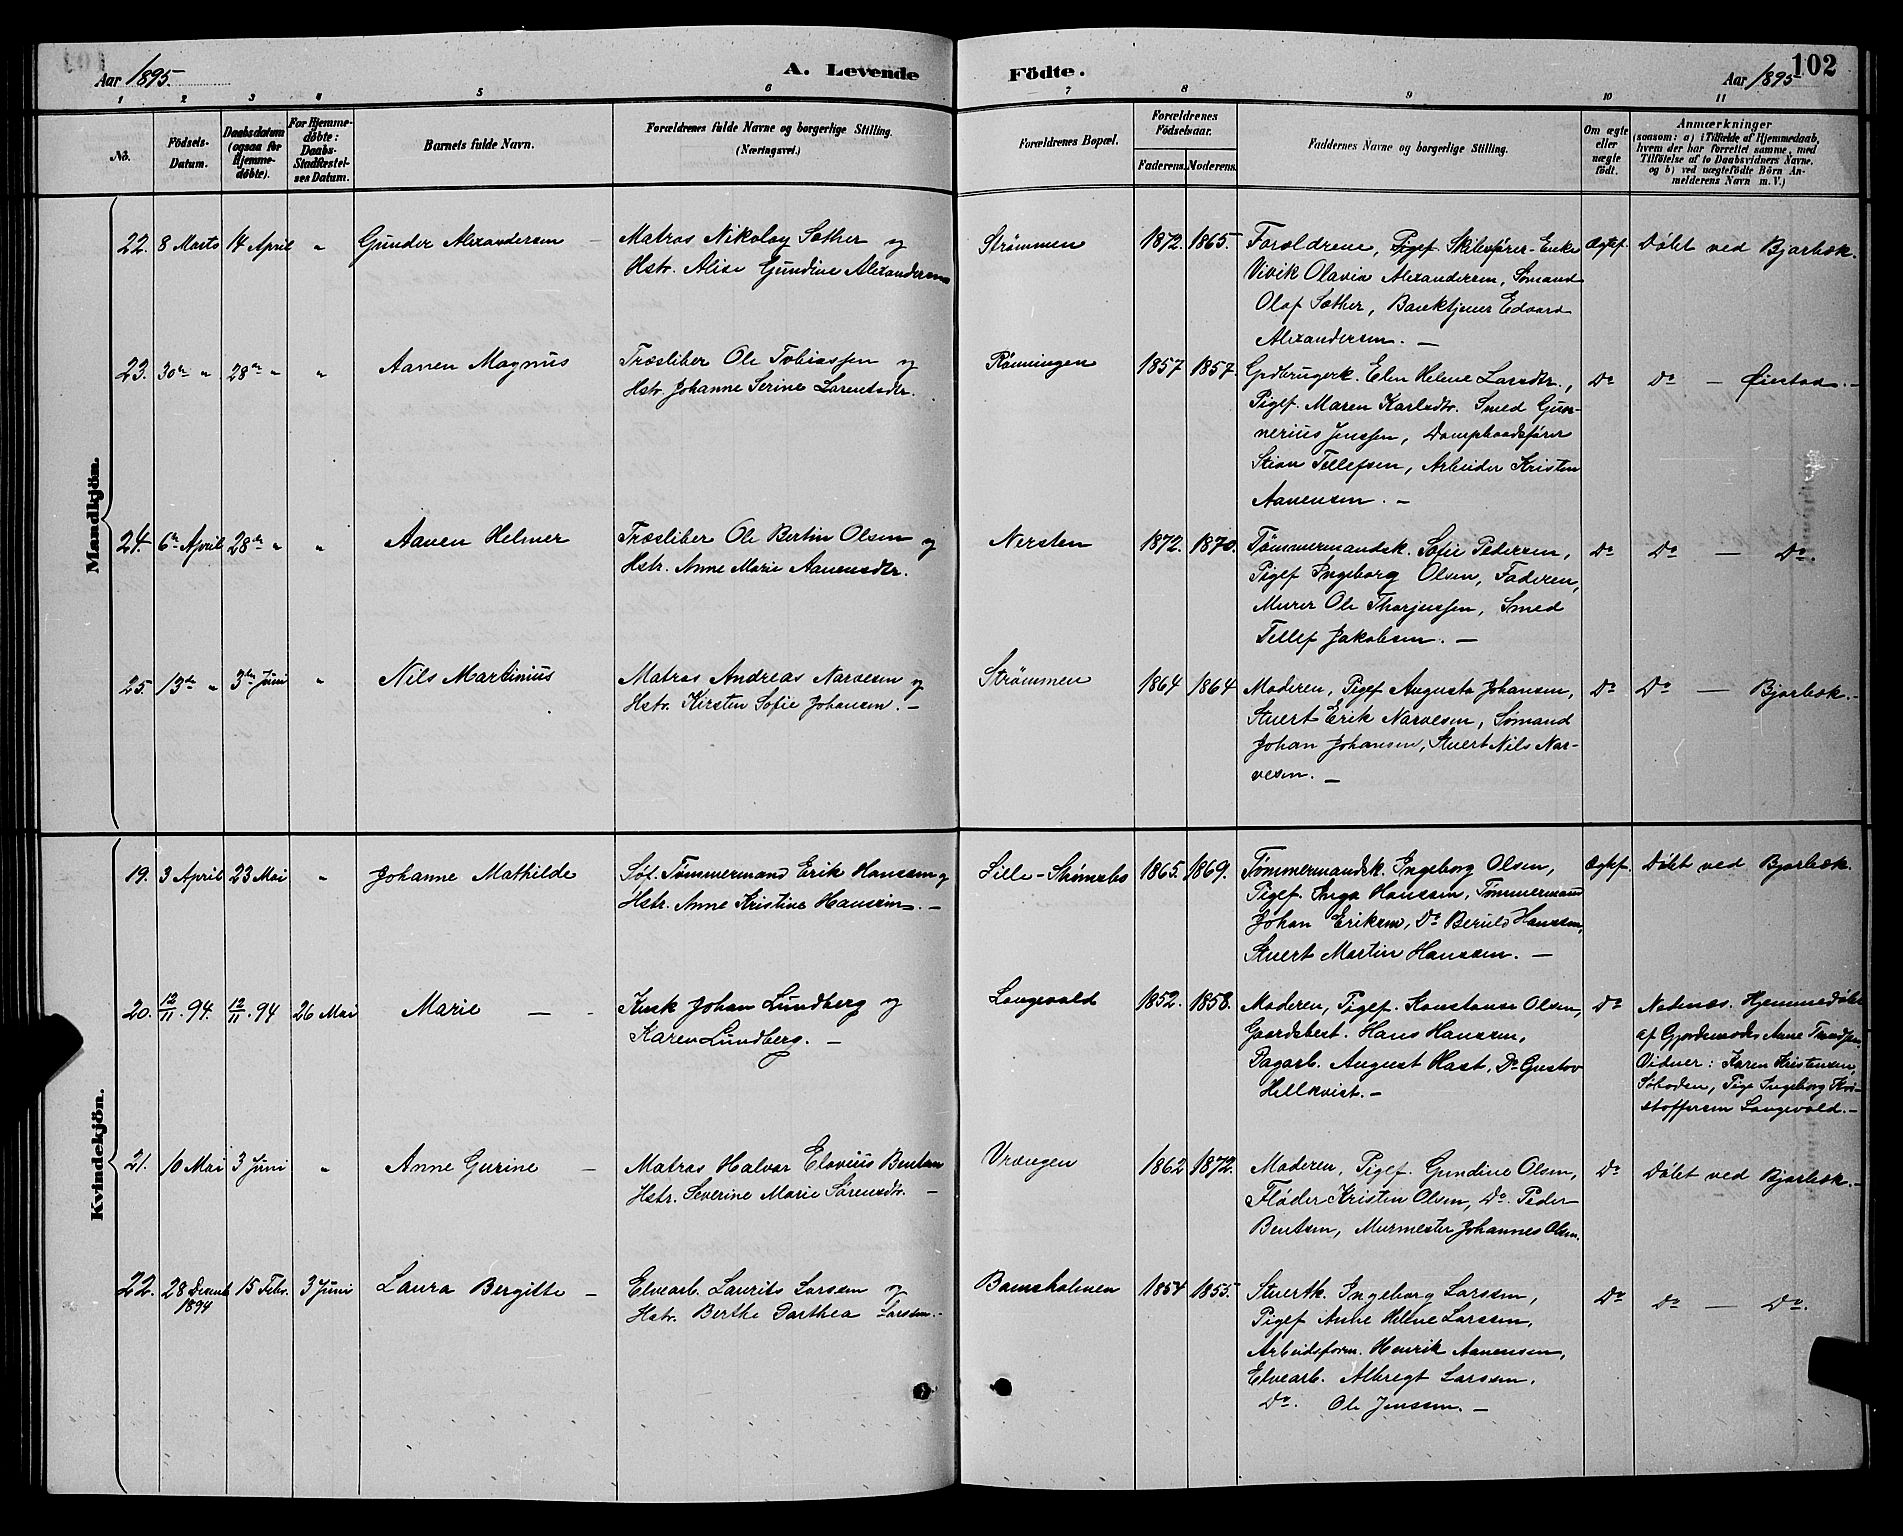 Aar 1895.
A. Levende Födte.
Aar 1895
102
1 2 3 4 5 6 7 8 9 10 11
No.
Födsels-Datum.
Daabsdatum (ogsaa for Hjemme-döbte).
For Hjemme-döbte: Daabs-Stadfæstel-ses Datum.
Barnets fulde Navn.
Forældrenes fulde Navne og borgerlige Stilling. (Næringsvei.)
Forældrenes Bopæl.
Forældrenes Födselsaar.
Faderens. Moderens.
Faddernes Navne og borgerlige Stilling.
Om ægte eller uægte födt.
Anmærkninger
(saasom: a) i Tilfælde af Hjemmedaab, hvem der har forrettet samme, med Tilföielse af to Daabsvidners Navne. og b) ved uægtefödte Börn Anmelderens Navn m. V.)
Mandkjön.
22. 8 Marts 14 April " Gunder Alexandersen – Matros Nikolay Sæther og Strømmen 1872. 1865. Forældrene, Pigef. Skibsfører-Enke Ægtef. Døbt ved Bjorbæk.
Hstr. Alise Gundine Alexandersen Vivik Olavia Alexandersen, Sømand
Olaf Sæther, Banktjener Edvard
Alexandersen. –
23. 30te " 28de " " Aanen Magnus Træsliber Ole Tobiassen og Rønningen 1857 1857. Grdbrugerk. Elen Helene Larsdtr., Do Do – Øiestad. –
Hstr. Johanne Serine Larentsdtr. Pigef. Maren Karlsdtr. Smed Gun-
nerius Jenssen, Dampbaadsfører
Stian Tellefsen, Arbeider Kristen
Aanensen. –
24. 6te April 28de " " Aanen Helmer Træsliber Ole Bertin Olsen og Nersten 1872. 1870. Tømmermandsk. Sofie Pedersen, Do Do – Do.
Hstr. Anne Marie Aanensdtr. Pigef Ingeborg Olsen, Faderen,
Murer Ole Thorjussen, Smed
Tellef Jakobsen. –
25. 13de " 3die Juni " Nils Martinius Matros Andreas Narvesen og Strømmen 1864 1864 Moderen, Pigef Augusta Johansen, Do Do – Bjorbæk. –
Hstr. Kirsten Sofie Johansen. – Stuert Erik Narvesen, Sømand
Johan Johansen, Stuert Nils Nar-
vesen. –
Kvindekjön.
19. 3 April 23 Mai " Johanne Mathilde Tømmermand Erik Hanssen og Lille- 1865. 1869. Tømmermandsk. Ingeborg Olsen, Ægtef. Døbt ved Bjorbæk.
Hstr. Anne Kristine Hanssen. – Pigef. Inga Hanssen, Tømmermand
Johan Eriksen, Do Hanssen,
Stuert Martin Hanssen. –
20. 12/11. 94. 12/11. 94 26 Mai Marie – – Kusk Johan Lundberg og Langevold 1852. 1858. Moderen, Pigef. Konstanse Olsen, Do Nedenæs. Hjemmedøbt
Karen Lundberg. – Gaardsbest. Hans Hanssen, af Gjordemoder Anne
Dagarb. August Hast, Do Gustav Vidner: Karen Kristensen,
Hellkvist. – Pige Ingeborg Kri-
stoffersen Langevold. –
21. 10 Mai 3 Juni " Anne Gurine – Matros Halvor Elovius Bentsen Vrængen 1862 1872. Moderen, Pigef. Gundine Olsen, Do Døbt ved Bjorbæk. –
Hstr. Severine Marie Sørensdtr. – Fløder Kristen Olsen, Do. Peder
Bentsen, Murmester Johannes Olsen.
22. 28 Decemb 1894 15 Febr. 3 Juni Laura Bergitte – Elvearb. Laurits Larssen og 1854 1855. Stuertk. Ingeborg Larssen, Do Do – Do.
Hstr. Berthe Dorthea Larssen. – Pigef Anne Helene Larssen,
Arbeidsform. Henrik Aanensen,
Elvearb. Albregt Larssen,
Do. Ole Jenssen. –